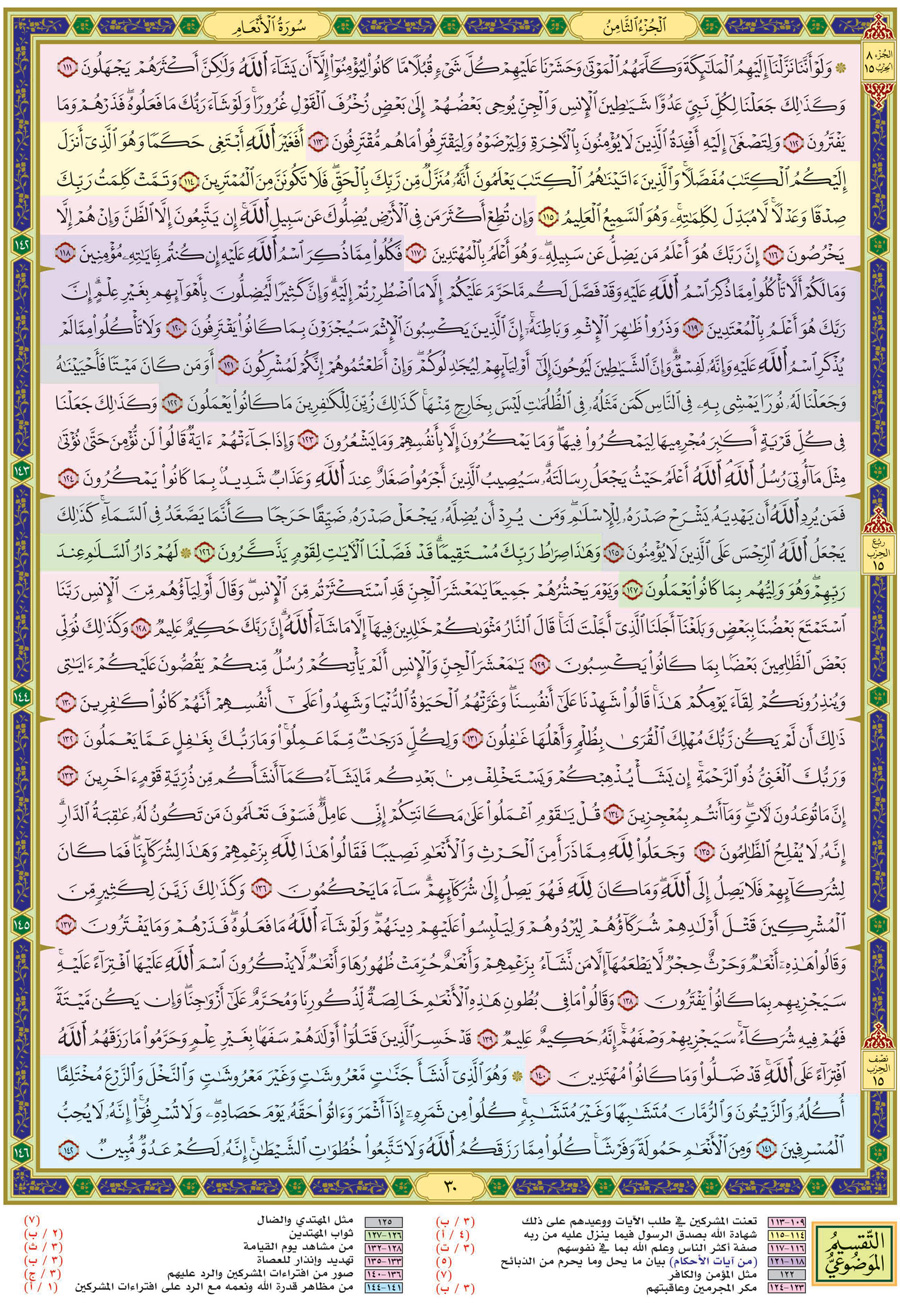 الجُزْءُ الثَّامِنُ
سُورَةُ الأَنْعَامِ
الجُزء ٨
الحِزب ١٥
۞ وَلَوْ أَنَّنَا نَزَّلْنَآ إِلَيْهِمُ ٱلْمَلَٰٓئِكَةَ وَكَلَّمَهُمُ ٱلْمَوْتَىٰ وَحَشَرْنَا عَلَيْهِمْ كُلَّ شَىْءٍ قُبُلًا مَّا كَانُوا۟ لِيُؤْمِنُوٓا۟ إِلَّآ أَن يَشَآءَ ٱللَّهُ وَلَٰكِنَّ أَكْثَرَهُمْ يَجْهَلُونَ ١١١
وَكَذَٰلِكَ جَعَلْنَا لِكُلِّ نَبِىٍّ عَدُوًّا شَيَٰطِينَ ٱلْإِنسِ وَٱلْجِنِّ يُوحِى بَعْضُهُمْ إِلَىٰ بَعْضٍ زُخْرُفَ ٱلْقَوْلِ غُرُورًا ۚ وَلَوْ شَآءَ رَبُّكَ مَا فَعَلُوهُ ۖ فَذَرْهُمْ وَمَا
يَفْتَرُونَ ١١٢ وَلِتَصْغَىٰٓ إِلَيْهِ أَفْـِٔدَةُ ٱلَّذِينَ لَا يُؤْمِنُونَ بِٱلْءَاخِرَةِ وَلِيَرْضَوْهُ وَلِيَقْتَرِفُوا۟ مَا هُم مُّقْتَرِفُونَ ١١٣ أَفَغَيْرَ ٱللَّهِ أَبْتَغِى حَكَمًا وَهُوَ ٱلَّذِىٓ أَنزَلَ
إِلَيْكُمُ ٱلْكِتَٰبَ مُفَصَّلًا ۚ وَٱلَّذِينَ ءَاتَيْنَٰهُمُ ٱلْكِتَٰبَ يَعْلَمُونَ أَنَّهُۥ مُنَزَّلٌ مِّن رَّبِّكَ بِٱلْحَقِّ ۖ فَلَا تَكُونَنَّ مِنَ ٱلْمُمْتَرِينَ ١١٤ وَتَمَّتْ كَلِمَتُ رَبِّكَ
صِدْقًا وَعَدْلًا ۚ لَّا مُبَدِّلَ لِكَلِمَٰتِهِۦ ۚ وَهُوَ ٱلسَّمِيعُ ٱلْعَلِيمُ ١١٥ وَإِن تُطِعْ أَكْثَرَ مَن فِى ٱلْأَرْضِ يُضِلُّوكَ عَن سَبِيلِ ٱللَّهِ ۚ إِن يَتَّبِعُونَ إِلَّا ٱلظَّنَّ وَإِنْ هُمْ إِلَّا
يَخْرُصُونَ ١١٦ إِنَّ رَبَّكَ هُوَ أَعْلَمُ مَن يَضِلُّ عَن سَبِيلِهِۦ ۖ وَهُوَ أَعْلَمُ بِٱلْمُهْتَدِينَ ١١٧ فَكُلُوا۟ مِمَّا ذُكِرَ ٱسْمُ ٱللَّهِ عَلَيْهِ إِن كُنتُم بِـَٔايَٰتِهِۦ مُؤْمِنِينَ ١١٨
١٤٢
وَمَا لَكُمْ أَلَّا تَأْكُلُوا۟ مِمَّا ذُكِرَ ٱسْمُ ٱللَّهِ عَلَيْهِ وَقَدْ فَصَّلَ لَكُم مَّا حَرَّمَ عَلَيْكُمْ إِلَّا مَا ٱضْطُرِرْتُمْ إِلَيْهِ ۗ وَإِنَّ كَثِيرًا لَّيُضِلُّونَ بِأَهْوَآئِهِم بِغَيْرِ عِلْمٍ ۗ إِنَّ
رَبَّكَ هُوَ أَعْلَمُ بِٱلْمُعْتَدِينَ ١١٩ وَذَرُوا۟ ظَٰهِرَ ٱلْإِثْمِ وَبَاطِنَهُۥٓ ۚ إِنَّ ٱلَّذِينَ يَكْسِبُونَ ٱلْإِثْمَ سَيُجْزَوْنَ بِمَا كَانُوا۟ يَقْتَرِفُونَ ١٢٠ وَلَا تَأْكُلُوا۟ مِمَّا لَمْ
يُذْكَرِ ٱسْمُ ٱللَّهِ عَلَيْهِ وَإِنَّهُۥ لَفِسْقٌ ۗ وَإِنَّ ٱلشَّيَٰطِينَ لَيُوحُونَ إِلَىٰٓ أَوْلِيَآئِهِمْ لِيُجَٰدِلُوكُمْ ۖ وَإِنْ أَطَعْتُمُوهُمْ إِنَّكُمْ لَمُشْرِكُونَ ١٢١ أَوَمَن كَانَ مَيْتًا فَأَحْيَيْنَٰهُ
وَجَعَلْنَا لَهُۥ نُورًا يَمْشِى بِهِۦ فِى ٱلنَّاسِ كَمَن مَّثَلُهُۥ فِى ٱلظُّلُمَٰتِ لَيْسَ بِخَارِجٍ مِّنْهَا ۚ كَذَٰلِكَ زُيِّنَ لِلْكَٰفِرِينَ مَا كَانُوا۟ يَعْمَلُونَ ١٢٢ وَكَذَٰلِكَ جَعَلْنَا
فِى كُلِّ قَرْيَةٍ أَكَٰبِرَ مُجْرِمِيهَا لِيَمْكُرُوا۟ فِيهَا ۖ وَمَا يَمْكُرُونَ إِلَّا بِأَنفُسِهِمْ وَمَا يَشْعُرُونَ ١٢٣ وَإِذَا جَآءَتْهُمْ ءَايَةٌ قَالُوا۟ لَن نُّؤْمِنَ حَتَّىٰ نُؤْتَىٰ
مِثْلَ مَآ أُوتِىَ رُسُلُ ٱللَّهِ ۘ ٱللَّهُ أَعْلَمُ حَيْثُ يَجْعَلُ رِسَالَتَهُۥ ۗ سَيُصِيبُ ٱلَّذِينَ أَجْرَمُوا۟ صَغَارٌ عِندَ ٱللَّهِ وَعَذَابٌ شَدِيدٌۢ بِمَا كَانُوا۟ يَمْكُرُونَ ١٢٤
١٤٣
فَمَن يُرِدِ ٱللَّهُ أَن يَهْدِيَهُۥ يَشْرَحْ صَدْرَهُۥ لِلْإِسْلَٰمِ ۖ وَمَن يُرِدْ أَن يُضِلَّهُۥ يَجْعَلْ صَدْرَهُۥ ضَيِّقًا حَرَجًا كَأَنَّمَا يَصَّعَّدُ فِى ٱلسَّمَآءِ ۚ كَذَٰلِكَ
يَجْعَلُ ٱللَّهُ ٱلرِّجْسَ عَلَى ٱلَّذِينَ لَا يُؤْمِنُونَ ١٢٥ وَهَٰذَا صِرَٰطُ رَبِّكَ مُسْتَقِيمًا ۗ قَدْ فَصَّلْنَا ٱلْءَايَٰتِ لِقَوْمٍ يَذَّكَّرُونَ ١٢٦ ۞ لَهُمْ دَارُ ٱلسَّلَٰمِ عِندَ
رُبع
الحِزب
١٥
رَبِّهِمْ ۖ وَهُوَ وَلِيُّهُم بِمَا كَانُوا۟ يَعْمَلُونَ ١٢٧ وَيَوْمَ يَحْشُرُهُمْ جَمِيعًا يَٰمَعْشَرَ ٱلْجِنِّ قَدِ ٱسْتَكْثَرْتُم مِّنَ ٱلْإِنسِ ۖ وَقَالَ أَوْلِيَآؤُهُم مِّنَ ٱلْإِنسِ رَبَّنَا
ٱسْتَمْتَعَ بَعْضُنَا بِبَعْضٍ وَبَلَغْنَآ أَجَلَنَا ٱلَّذِىٓ أَجَّلْتَ لَنَا ۚ قَالَ ٱلنَّارُ مَثْوَىٰكُمْ خَٰلِدِينَ فِيهَآ إِلَّا مَا شَآءَ ٱللَّهُ ۗ إِنَّ رَبَّكَ حَكِيمٌ عَلِيمٌ ١٢٨ وَكَذَٰلِكَ نُوَلِّى
بَعْضَ ٱلظَّٰلِمِينَ بَعْضًۢا بِمَا كَانُوا۟ يَكْسِبُونَ ١٢٩ يَٰمَعْشَرَ ٱلْجِنِّ وَٱلْإِنسِ أَلَمْ يَأْتِكُمْ رُسُلٌ مِّنكُمْ يَقُصُّونَ عَلَيْكُمْ ءَايَٰتِى
وَيُنذِرُونَكُمْ لِقَآءَ يَوْمِكُمْ هَٰذَا ۚ قَالُوا۟ شَهِدْنَا عَلَىٰٓ أَنفُسِنَا ۖ وَغَرَّتْهُمُ ٱلْحَيَوٰةُ ٱلدُّنْيَا وَشَهِدُوا۟ عَلَىٰٓ أَنفُسِهِمْ أَنَّهُمْ كَانُوا۟ كَٰفِرِينَ ١٣٠
١٤٤
ذَٰلِكَ أَن لَّمْ يَكُن رَّبُّكَ مُهْلِكَ ٱلْقُرَىٰ بِظُلْمٍ وَأَهْلُهَا غَٰفِلُونَ ١٣١ وَلِكُلٍّ دَرَجَٰتٌ مِّمَّا عَمِلُوا۟ ۚ وَمَا رَبُّكَ بِغَٰفِلٍ عَمَّا يَعْمَلُونَ ١٣٢
وَرَبُّكَ ٱلْغَنِىُّ ذُو ٱلرَّحْمَةِ ۚ إِن يَشَأْ يُذْهِبْكُمْ وَيَسْتَخْلِفْ مِنۢ بَعْدِكُم مَّا يَشَآءُ كَمَآ أَنشَأَكُم مِّن ذُرِّيَّةِ قَوْمٍ ءَاخَرِينَ ١٣٣
إِنَّ مَا تُوعَدُونَ لَءَاتٍ ۖ وَمَآ أَنتُم بِمُعْجِزِينَ ١٣٤ قُلْ يَٰقَوْمِ ٱعْمَلُوا۟ عَلَىٰ مَكَانَتِكُمْ إِنِّى عَامِلٌ ۖ فَسَوْفَ تَعْلَمُونَ مَن تَكُونُ لَهُۥ عَٰقِبَةُ ٱلدَّارِ ۗ
إِنَّهُۥ لَا يُفْلِحُ ٱلظَّٰلِمُونَ ١٣٥ وَجَعَلُوا۟ لِلَّهِ مِمَّا ذَرَأَ مِنَ ٱلْحَرْثِ وَٱلْأَنْعَٰمِ نَصِيبًا فَقَالُوا۟ هَٰذَا لِلَّهِ بِزَعْمِهِمْ وَهَٰذَا لِشُرَكَآئِنَا ۖ فَمَا كَانَ
لِشُرَكَآئِهِمْ فَلَا يَصِلُ إِلَى ٱللَّهِ ۖ وَمَا كَانَ لِلَّهِ فَهُوَ يَصِلُ إِلَىٰ شُرَكَآئِهِمْ ۗ سَآءَ مَا يَحْكُمُونَ ١٣٦ وَكَذَٰلِكَ زَيَّنَ لِكَثِيرٍ مِّنَ
ٱلْمُشْرِكِينَ قَتْلَ أَوْلَٰدِهِمْ شُرَكَآؤُهُمْ لِيُرْدُوهُمْ وَلِيَلْبِسُوا۟ عَلَيْهِمْ دِينَهُمْ ۖ وَلَوْ شَآءَ ٱللَّهُ مَا فَعَلُوهُ ۖ فَذَرْهُمْ وَمَا يَفْتَرُونَ ١٣٧
١٤٥
وَقَالُوا۟ هَٰذِهِۦٓ أَنْعَٰمٌ وَحَرْثٌ حِجْرٌ لَّا يَطْعَمُهَآ إِلَّا مَن نَّشَآءُ بِزَعْمِهِمْ وَأَنْعَٰمٌ حُرِّمَتْ ظُهُورُهَا وَأَنْعَٰمٌ لَّا يَذْكُرُونَ ٱسْمَ ٱللَّهِ عَلَيْهَا ٱفْتِرَآءً عَلَيْهِ ۚ
سَيَجْزِيهِم بِمَا كَانُوا۟ يَفْتَرُونَ ١٣٨ وَقَالُوا۟ مَا فِى بُطُونِ هَٰذِهِ ٱلْأَنْعَٰمِ خَالِصَةٌ لِّذُكُورِنَا وَمُحَرَّمٌ عَلَىٰٓ أَزْوَٰجِنَا ۖ وَإِن يَكُن مَّيْتَةً
فَهُمْ فِيهِ شُرَكَآءُ ۚ سَيَجْزِيهِمْ وَصْفَهُمْ ۚ إِنَّهُۥ حَكِيمٌ عَلِيمٌ ١٣٩ قَدْ خَسِرَ ٱلَّذِينَ قَتَلُوٓا۟ أَوْلَٰدَهُمْ سَفَهًۢا بِغَيْرِ عِلْمٍ وَحَرَّمُوا۟ مَا رَزَقَهُمُ ٱللَّهُ
ٱفْتِرَآءً عَلَى ٱللَّهِ ۚ قَدْ ضَلُّوا۟ وَمَا كَانُوا۟ مُهْتَدِينَ ١٤٠ ۞ وَهُوَ ٱلَّذِىٓ أَنشَأَ جَنَّٰتٍ مَّعْرُوشَٰتٍ وَغَيْرَ مَعْرُوشَٰتٍ وَٱلنَّخْلَ وَٱلزَّرْعَ مُخْتَلِفًا
نصف
الحِزب
١٥
أُكُلُهُۥ وَٱلزَّيْتُونَ وَٱلرُّمَّانَ مُتَشَٰبِهًا وَغَيْرَ مُتَشَٰبِهٍ ۚ كُلُوا۟ مِن ثَمَرِهِۦٓ إِذَآ أَثْمَرَ وَءَاتُوا۟ حَقَّهُۥ يَوْمَ حَصَادِهِۦ ۖ وَلَا تُسْرِفُوٓا۟ ۚ إِنَّهُۥ لَا يُحِبُّ
ٱلْمُسْرِفِينَ ١٤١ وَمِنَ ٱلْأَنْعَٰمِ حَمُولَةً وَفَرْشًا ۚ كُلُوا۟ مِمَّا رَزَقَكُمُ ٱللَّهُ وَلَا تَتَّبِعُوا۟ خُطُوَٰتِ ٱلشَّيْطَٰنِ ۚ إِنَّهُۥ لَكُمْ عَدُوٌّ مُّبِينٌ ١٤٢
١٤٦
٣٠
التَّقسِيمُ المَوضُوعِيُّ
١٠٩-١١٣ تعنت المشركين في طلب الآيات ووعيدهم على ذلك (٣ / ب)
١١٤-١١٥ شهادة الله بصدق الرسول فيما ينزل عليه من ربه (٤ / أ)
١١٦-١١٧ صفة أكثر الناس وعلم الله بما في نفوسهم (٣ / ت)
١١٨-١٢١ (من آيات الأحكام) بيان ما يحل وما يحرم من الذبائح (٥)
١٢٢ مثل المؤمن والكافر (٧)
١٢٣-١٢٤ مكر المجرمين وعاقبتهم (٣ / ب)
١٢٥ مثل المهتدي والضال (٧)
١٢٦-١٢٧ ثواب المهتدين (٢ / ب)
١٢٨-١٣٢ من مشاهد يوم القيامة (٣ / ث)
١٣٣-١٣٥ تهديد وإنذار للعصاة (٣ / ب)
١٣٦-١٤٠ صور من افتراءات المشركين والرد عليهم (٣ / ج)
١٤١-١٤٤ من مظاهر قدرة الله ونعمه مع الرد على افتراءات المشركين (١ / أ)